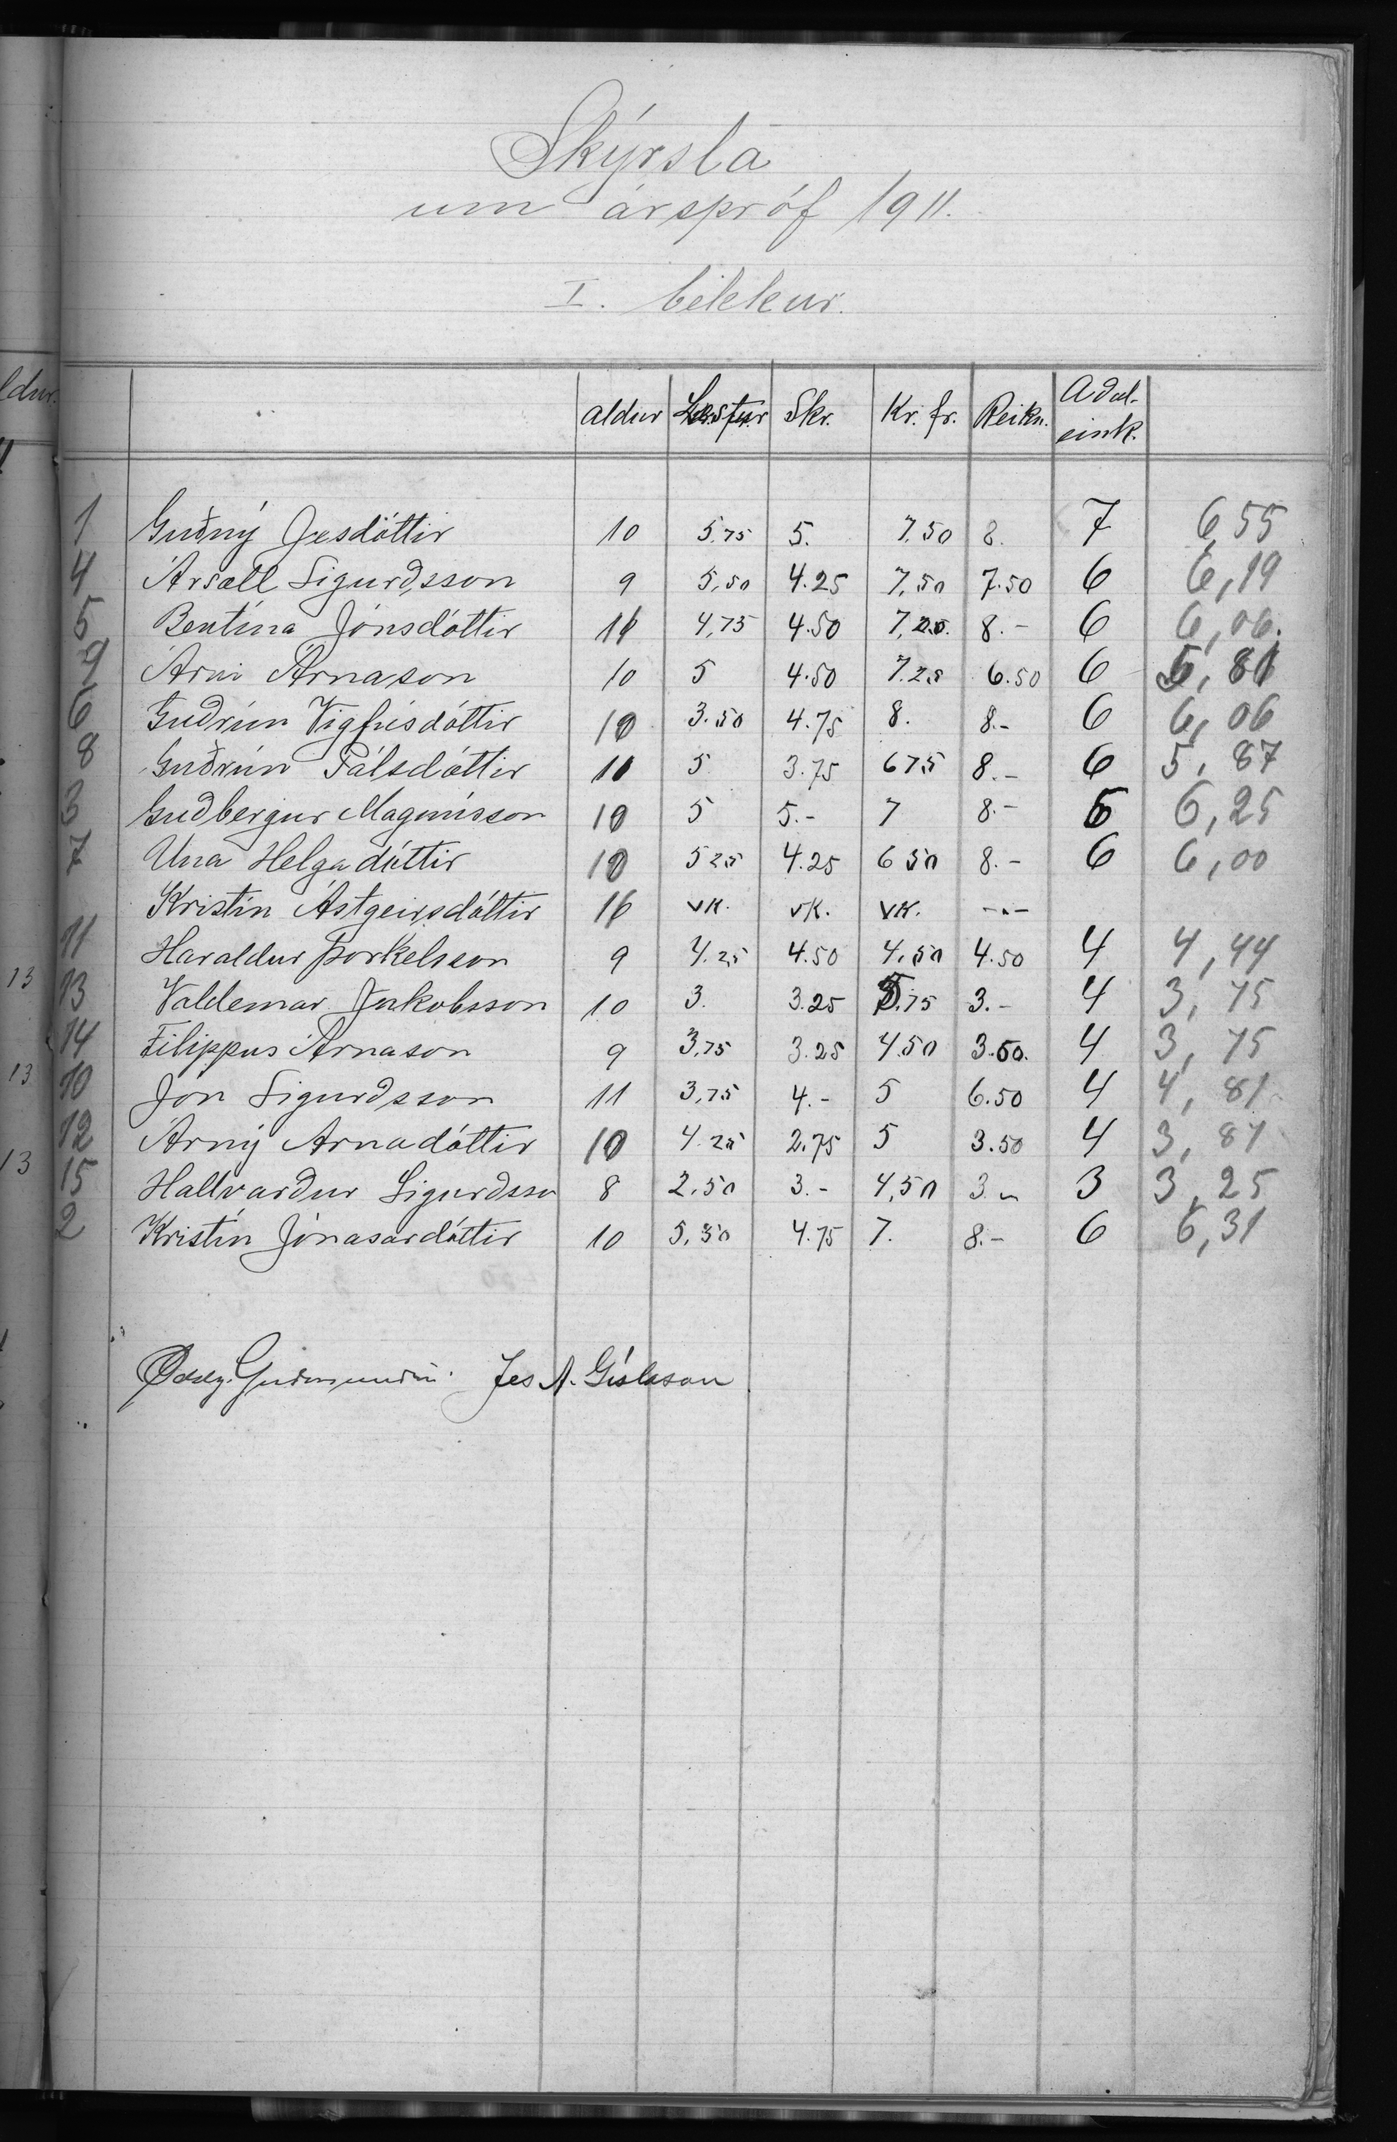 Skýrsla
um árspróf 1911.
I. bekkur.
aldur Lestur Skr. Kr. fr. Reikn. Aðal-eink.
1 Guðný Jesdóttir 10 5,75 5. 7,50 8. 7 6,55
4 Ársæll Sigurðsson 9 5,50 4.25 7,50 7.50 6 6,19
5 Bentína Jónsdóttir 11 4,75 4.50 7,25. 8.- 6 6,06.
9 Árni Árnason 10 5 4.50 7.25 6.50 6 5,81
6 Guðrún Vigfúsdóttir 10 3.50 4.75 8. 8.- 6 6,06
8 Guðrún Pálsdóttir 11 5 3.75 675 8.- 6 5,87
3 Guðbergur Magnússon 10 5 5.- 7 8.- 6 6,25
7 Una Helgadóttir 10 525 4.25 650 8.- 6 6,00
Kristín Ástgeirsdóttir vk. vk. vk. -.-
11 Haraldur Þorkelsson 9 4.25 4.50 4,50 4.50 4 4,44
13 Valdemar Jakobsson 10 3. 3.25 5,75 3.- 4 3,75
14 Filippus Árnason 9 3,75 3.25 4.50 3.50. 4 3,75
10 Jón Sigurðsson 11 3,75 4.- 5 6.50 4 4,81
12 Árný Árnadóttir 10 4.25 2.75 5 3.50 4 3,87
15 Hallvarður Sigurðsso 8 2,50 3.- 4,50 3.- 3 3,25
2 Kristín Jónasardóttir 10 5,50 4.75 7. 8.- 6 6,31
Jes A. Gíslason
ldur.
13
13
13